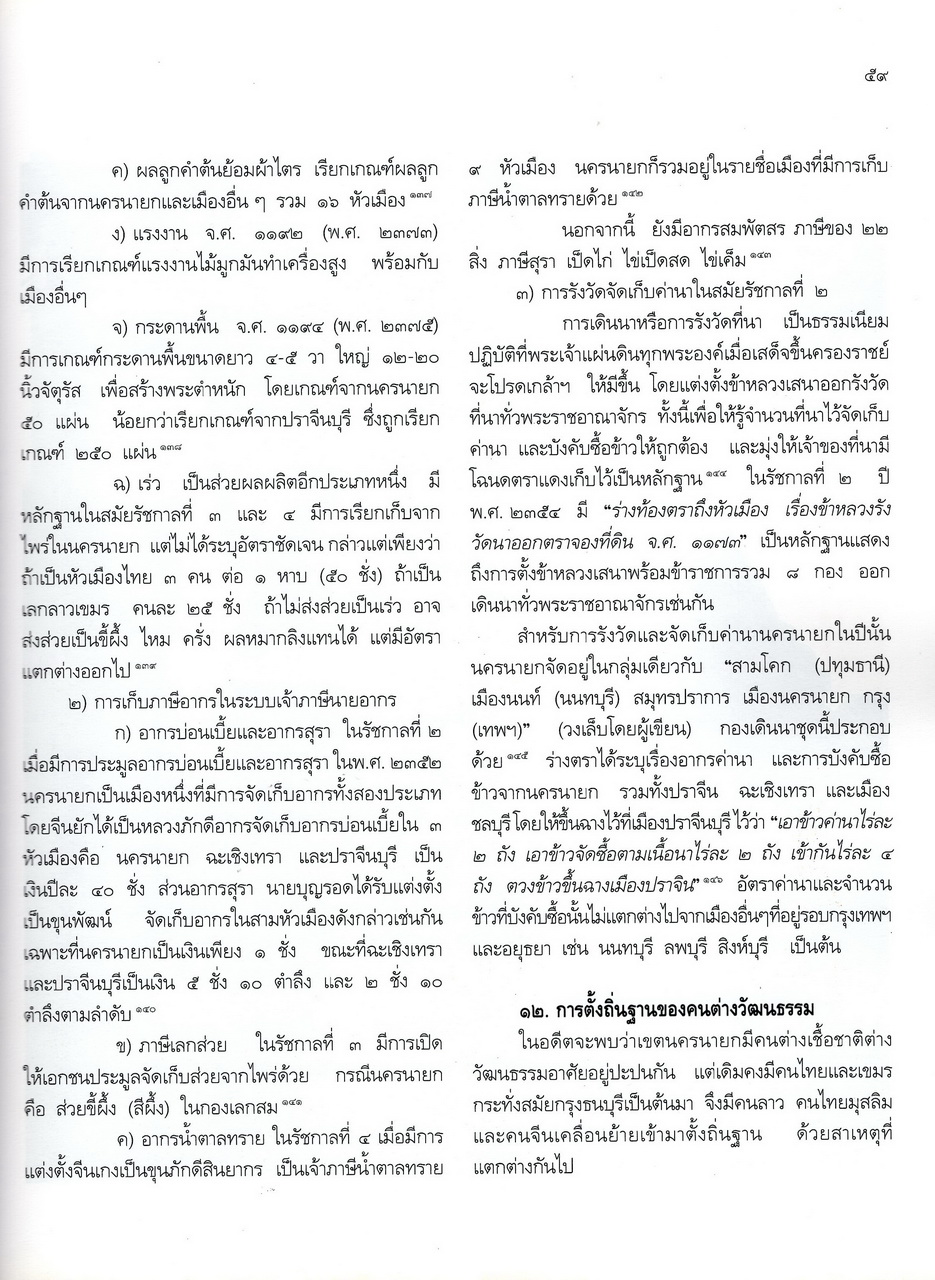 ๕๙
ค) ผลลูกคำต้นย้อมผ้าไตร เรียกเกณฑ์ผลลูก
คำต้นจากนครนายกและเมืองอื่น ๆ รวม ๑๖ หัวเมือง ๑๓๗
ง) แรงงาน จ.ศ. ๑๑๙๒ (พ.ศ. ๒๓๗๓)
มีการเรียกเกณฑ์แรงงานไม้มูกมันทำเครื่องสูง พร้อมกับ
เมืองอื่นๆ
จ) กระดานพื้น จ.ศ. ๑๑๙๔ (พ.ศ. ๒๓๗๕)
มีการเกณฑ์กระดานพื้นขนาดยาว ๔-๕ วา ใหญ่ ๑๒-๒๐
นิ้วจัตุรัส เพื่อสร้างพระตำหนัก โดยเกณฑ์จากนครนายก
๕๐ แผ่น น้อยกว่าเรียกเกณฑ์จากปราจีนบุรี ซึ่งถูกเรียก
เกณฑ์ ๒๕๐ แผ่น ๑๓๘
ฉ) เร่ว เป็นส่วยผลผลิตอีกประเภทหนึ่ง มี
หลักฐานในสมัยรัชกาลที่ ๓ และ ๔ มีการเรียกเก็บจาก
ไพร่ในนครนายก แต่ไม่ได้ระบุอัตราชัดเจน กล่าวแต่เพียงว่า
ถ้าเป็นหัวเมืองไทย ๓ คน ต่อ ๑ หาบ (๕๐ ชั่ง) ถ้าเป็น
เลกลาวเขมร คนละ ๒๕ ชั่ง ถ้าไม่ส่งส่วยเป็นเร่ว อาจ
ส่งส่วยเป็นขี้ผึ้ง ไหม ครั่ง ผลหมากลิงแทนได้ แต่มีอัตรา
แตกต่างออกไป ๑๓๙
๒) การเก็บภาษีอากรในระบบเจ้าภาษีนายอากร
ก) อากรบ่อนเบี้ยและอากรสุรา ในรัชกาลที่ ๒
เมื่อมีการประมูลอากรบ่อนเบี้ยและอากรสุรา ในพ.ศ. ๒๓๕๒
นครนายกเป็นเมืองหนึ่งที่มีการจัดเก็บอากรทั้งสองประเภท
โดยจีนยักได้เป็นหลวงภักดีอากรจัดเก็บอากรบ่อนเบี้ยใน ๓
หัวเมืองคือ นครนายก ฉะเชิงเทรา และปราจีนบุรี เป็น
เงินปีละ ๔๐ ชั่ง ส่วนอากรสุรา นายบุญรอดได้รับแต่งตั้ง
เป็นขุนพัฒน์ จัดเก็บอากรในสามหัวเมืองดังกล่าวเช่นกัน
เฉพาะที่นครนายกเป็นเงินเพียง ๑ ชั่ง ขณะที่ฉะเชิงเทรา
และปราจีนบุรีเป็นเงิน ๕ ชั่ง ๑๐ ตำลึง และ ๒ ชั่ง ๑๐
ตำลึงตามลำดับ ๑๔๐
ข) ภาษีเลกส่วย ในรัชกาลที่ ๓ มีการเปิด
ให้เอกชนประมูลจัดเก็บส่วยจากไพร่ด้วย กรณีนครนายก
คือ ส่วยขี้ผึ้ง (สีผึ้ง) ในกองเลกสม ๑๔๑
ค) อากรน้ำตาลทราย ในรัชกาลที่ ๔ เมื่อมีการ
แต่งตั้งจีนเกงเป็นขุนภักดีสินยากร เป็นเจ้าภาษีน้ำตาลทราย
๙ หัวเมือง นครนายกก็รวมอยู่ในรายชื่อเมืองที่มีการเก็บ
ภาษีน้ำตาลทรายด้วย ๑๔๒
นอกจากนี้ ยังมีอากรสมพัตสร ภาษีของ ๒๒
สิ่ง ภาษีสุรา เป็ดไก่ ไข่เป็ดสด ไข่เค็ม ๑๔๓
๓) การรังวัดจัดเก็บค่านาในสมัยรัชกาลที่ ๒
การเดินนาหรือการรังวัดที่นา เป็นธรรมเนียม
ปฏิบัติที่พระเจ้าแผ่นดินทุกพระองค์เมื่อเสด็จขึ้นครองราชย์
จะโปรดเกล้าฯ ให้มีขึ้น โดยแต่งตั้งข้าหลวงเสนาออกรังวัด
ที่นาทั่วพระราชอาณาจักร ทั้งนี้เพื่อให้รู้จำนวนที่นาไว้จัดเก็บ
ค่านา และบังคับซื้อข้าวให้ถูกต้อง และมุ่งให้เจ้าของที่นามี
โฉนดตราแดงเก็บไว้เป็นหลักฐาน ๑๔๔ ในรัชกาลที่ ๒ ปี
พ.ศ. ๒๓๕๔ มี “ร่างท้องตราถึงหัวเมือง เรื่องข้าหลวงรัง
วัดนาออกตราจองที่ดิน จ.ศ. ๑๑๗๓” เป็นหลักฐานแสดง
ถึงการตั้งข้าหลวงเสนาพร้อมข้าราชการรวม ๘ กอง ออก
เดินนาทั่วพระราชอาณาจักรเช่นกัน
สำหรับการรังวัดและจัดเก็บค่านานครนายกในปีนั้น
นครนายกจัดอยู่ในกลุ่มเดียวกับ “สามโคก (ปทุมธานี)
เมืองนนท์ (นนทบุรี) สมุทรปราการ เมืองนครนายก กรุง
(เทพฯ)” (วงเล็บโดยผู้เขียน) กองเดินนาชุดนี้ประกอบ
ด้วย ๑๔๕ ร่างตราได้ระบุเรื่องอากรค่านา และการบังคับซื้อ
ข้าวจากนครนายก รวมทั้งปราจีน ฉะเชิงเทรา และเมือง
ชลบุรี โดยให้ขึ้นฉางไว้ที่เมืองปราจีนบุรี ไว้ว่า “เอาข้าวค่านาไร่ละ
๒ ถัง เอาข้าวจัดซื้อตามเนื้อนาไร่ละ ๒ ถัง เข้ากันไร่ละ ๔
ถัง ตวงข้าวขึ้นฉางเมืองปราจิน” ๑๔๖ อัตราค่านาและจำนวน
ข้าวที่บังคับซื้อนั้นไม่แตกต่างไปจากเมืองอื่นๆที่อยู่รอบกรุงเทพฯ
และอยุธยา เช่น นนทบุรี ลพบุรี สิงห์บุรี เป็นต้น
๑๒. การตั้งถิ่นฐานของคนต่างวัฒนธรรม
ในอดีตจะพบว่าเขตนครนายกมีคนต่างเชื้อชาติต่าง
วัฒนธรรมอาศัยอยู่ปะปนกัน แต่เดิมคงมีคนไทยและเขมร
กระทั่งสมัยกรุงธนบุรีเป็นต้นมา จึงมีคนลาว คนไทยมุสลิม
และคนจีนเคลื่อนย้ายเข้ามาตั้งถิ่นฐาน ด้วยสาเหตุที่
แตกต่างกันไป